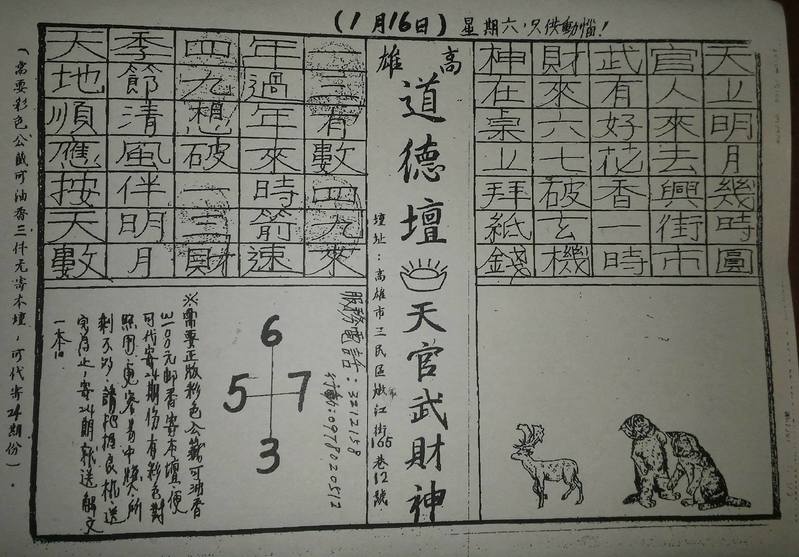 (1月16日) 星期六，只供動惱！
天官武財神
上人有來在
明來好六桌
月去花七上
幾興香破拜
時街一玄紙
圓市時機錢
高雄
道德壇
天官武財神
壇址：高雄市三民區嫩江街165巷12號
一年四季天
三過九節地
有年想清順
數來破風應
四時一伴按
九箭三明天
來速財月數
服務電話：3212158
行動：0978020512
6
5 7
3
※需要正版彩色公籤可油香
3100元郵寄本壇，便
可代寄24期份有彩色對
一本。
（需要彩色公籤可油香三仟元寄本壇，可代寄24期份）。